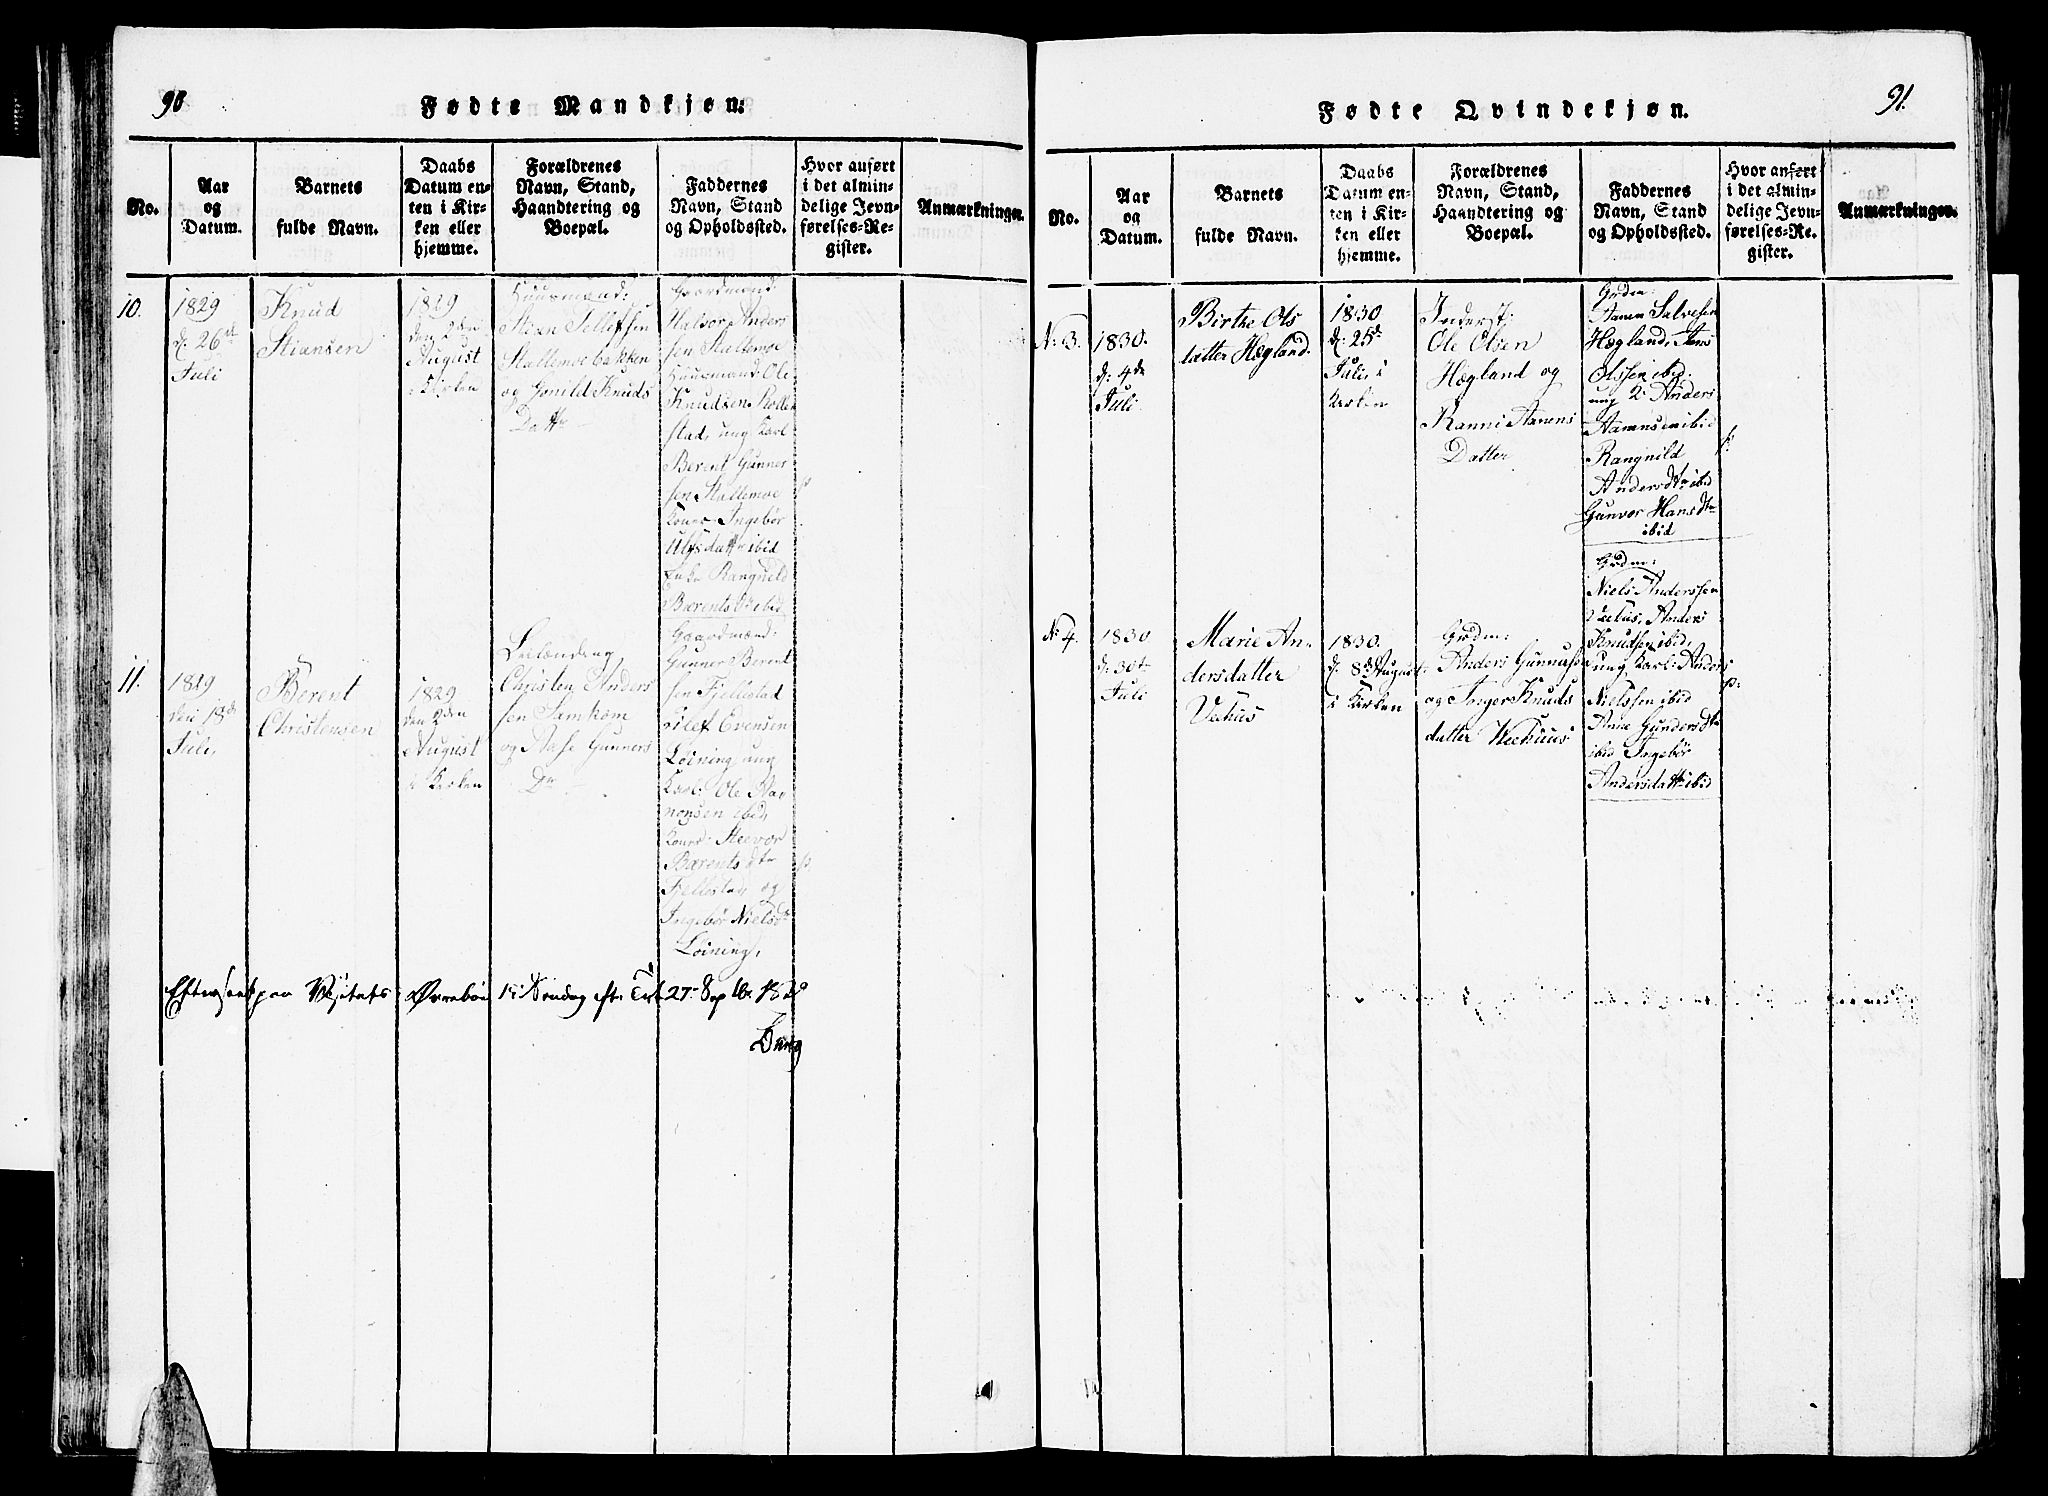 90
Fødte Mandkjøn.
No.
Aar
og
Datum.
Barnets
fulde Navn.
Daabs
Datum en-
ten i Kir-
ken eller
hjemme.
Forældrenes
Navn, Stand,
Haandtering og
Boepæl.
Faddernes
Navn, Stand
og Opholdssted.
Hvor anført
i det almin-
delige Jevn-
førelses-Re-
gister.
Anmærkninger.
10.
1829
d: 26de
Juli
Knud
Stiansen
1829
den 2den
August
i Kirken
Huusmand:
Stian Tellefsen
Stallemoebakken
og Gonild Knuds
Dattr
Gaardmænd:
Halvor Anders
sen Stallemoe
Huusmand: Ole
Knudsen
stad, ung Karl
Berent Gunner
sen Stallemoe
Koner: Ingebor
Ulfsdattr ibid
Enke Rangnild
Bærents Dr ibid
11.
1829
den 13de
Juli,
Berent
Christensen
1829
den 2den
August
i Kirken
Leilænding
Christen Anders
sen Samkom
og Aase Gunners
Dr
Gaardmænd:
Gunner Berent
sen Fjellestad
Eilef Evensen
Løining, ung
Karl: Ole Aa-
nonsen ibid,
Kones: Steevor
Bærents dtr
Fjellestad og
Ingebør Nielsd
Løining,
Efterseet paa Visitats Øvrebøe Søndag eft. Trit. 27 Septbr
91.
Fødte Qvindekjøn.
No.
Aar
og
Datum.
Barnets
fulde Navn.
Daabs
Datum en-
ten i Kir-
ken eller
hjemme.
Forældrenes
Navn, Stand,
Haandtering og
Boepæl.
Faddernes
Navn, Stand
og Opholdssted.
Hvor anført
i det almin-
delige Jevn-
førelses-Re-
gister.
Anmærkninger.
No 3.
1830.
d: 4de
Juli
Birthe Ols
datter Hægland.
1830
d: 25de
Juli, i
Kirken
Inderst:
Ole Olsen
Hægland og
Ranni Aanens
Datter
Grdm:
Aanen Salvesen
Hægland,
Olssen ibid:
ung 2: Anders
Aanensen ibid
Rangnild
Andersdtr ibid
Gunvor Hansdtr
ibid
No 4.
1830
d: 30te
Juli
Marie An-
dersdatter
Vehus
1830.
d: 8de August
i Kirken
Grdm:
Anders Gunnarsen
og Inger Knuds
datter Veehuus
Grdm:
Niels Anderssen
Vehus, Anders
Knudsen ibid,
ung Karl: Anders
Nielssen ibid
Ane Gundersdtr
ibid Ingebør
Andersdattr ibid